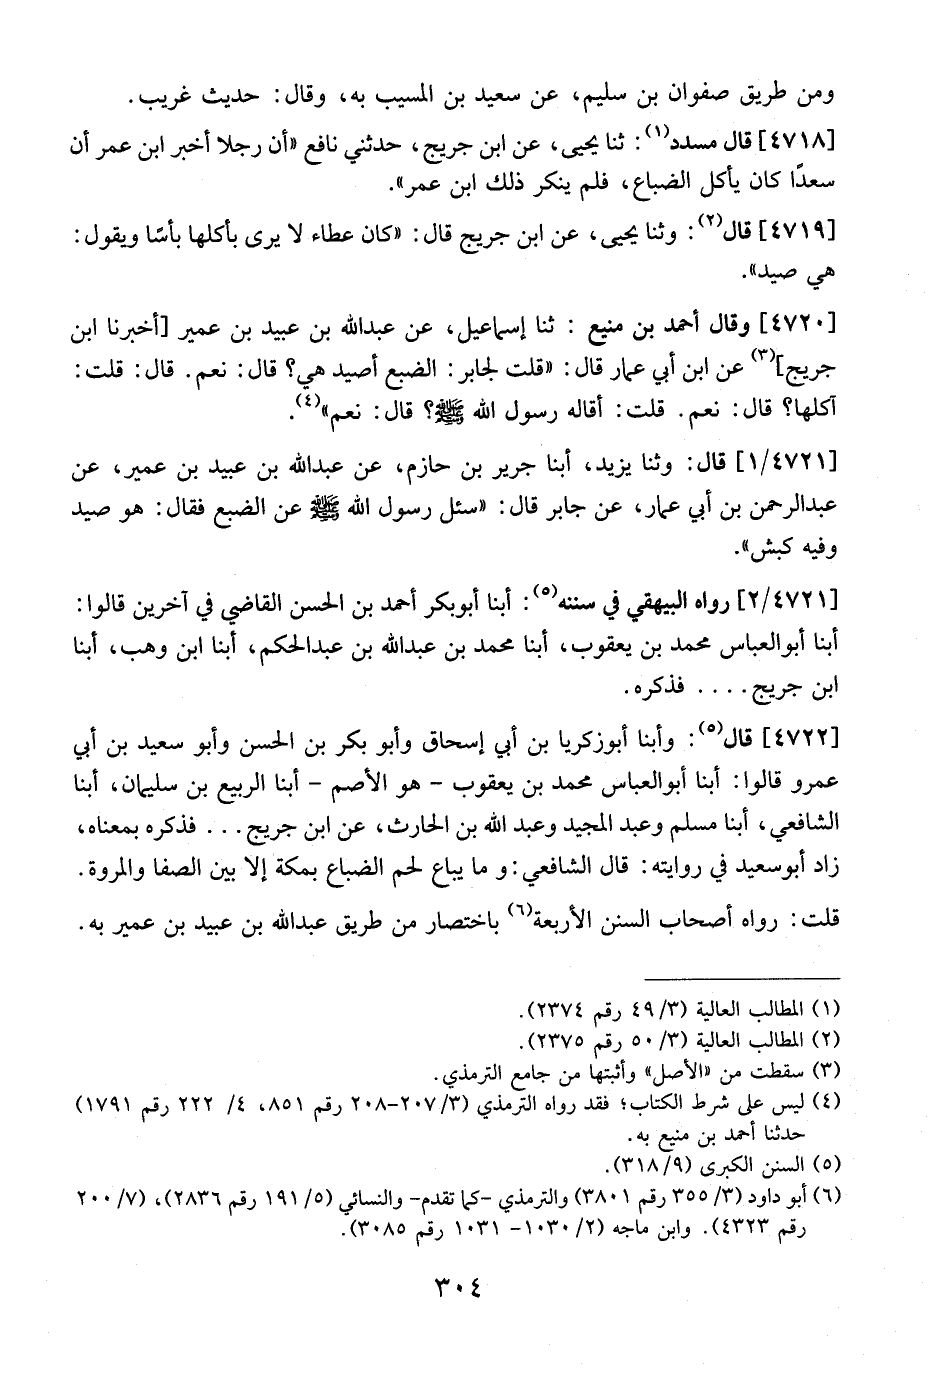 ومن طريق صفوان بن سليم، عن سعيد بن المسيب به، وقال: حديث غريب.
[٤٧١٨] قال مسدد(١): ثنا يحيى، عن ابن جريج، حدثني نافع «أن رجلا أخبر ابن عمر أن
سعدًا كان يأكل الضباع، فلم ينكر ذلك ابن عمر».
[٤٧١٩] قال(٢): وثنا يحيى، عن ابن جريج قال: «كان عطاء لا يرى بأكلها بأسًا ويقول:
هي صيد».
[٤٧٢٠] وقال أحمد بن منيع : ثنا إسماعيل، عن عبدالله بن عبيد بن عمير [أخبرنا ابن
جريج](٣) عن ابن أبي عمار قال: «قلت لجابر: الضبع أصيد هي؟ قال: نعم. قال: قلت:
آكلها؟ قال: نعم. قلت: أقاله رسول الله ﷺ؟ قال: نعم»(٤).
[١/٤٧٢١] قال: وثنا يزيد، أبنا جرير بن حازم، عن عبدالله بن عبيد بن عمير، عن
عبدالرحمن بن أبي عمار، عن جابر قال: «سئل رسول الله ﷺ عن الضبع فقال: هو صيد
وفيه كبش».
[٢/٤٧٢١] رواه البيهقي في سننه(٥): أبنا أبوبكر أحمد بن الحسن القاضي في آخرين قالوا:
أبنا أبوالعباس محمد بن يعقوب، أبنا محمد بن عبدالله بن عبدالحكم، أبنا ابن وهب، أبنا
ابن جريج.... فذكره.
[٤٧٢٢] قال(٥): وأبنا أبوزكريا بن أبي إسحاق وأبو بكر بن الحسن وأبو سعيد بن أبي
عمرو قالوا: أبنا أبوالعباس محمد بن يعقوب - هو الأصم - أبنا الربيع بن سليمان، أبنا
الشافعي، أبنا مسلم وعبد المجيد وعبد الله بن الحارث، عن ابن جريج... فذكره بمعناه،
زاد أبوسعيد في روايته: قال الشافعي:و ما يباع لحم الضباع بمكة إلا بين الصفا والمروة.
قلت: رواه أصحاب السنن الأربعة(٦) باختصار من طريق عبدالله بن عبيد بن عمير به.
(١) المطالب العالية (٣/ ٤٩ رقم ٢٣٧٤).
(٢) المطالب العالية (٣/ ٥٠ رقم ٢٣٧٥).
(٣) سقطت من «الأصل» وأثبتها من جامع الترمذي.
(٤) ليس على شرط الكتاب؛ فقد رواه الترمذي (٣/ ٢٠٧-٢٠٨ رقم ٨٥١، ٤/ ٢٢٢ رقم ١٧٩١)
حدثنا أحمد بن منيع به.
(٥) السنن الكبرى (٩/ ٣١٨).
(٦) أبو داود (٣/ ٣٥٥ رقم ٣٨٠١) والترمذي -كما تقدم- والنسائي (٥/ ١٩١ رقم ٢٨٣٦)، (٧/ ٢٠٠
رقم ٤٣٢٣). وابن ماجه (٢/ ١٠٣٠- ١٠٣١ رقم ٣٠٨٥).
٣٠٤